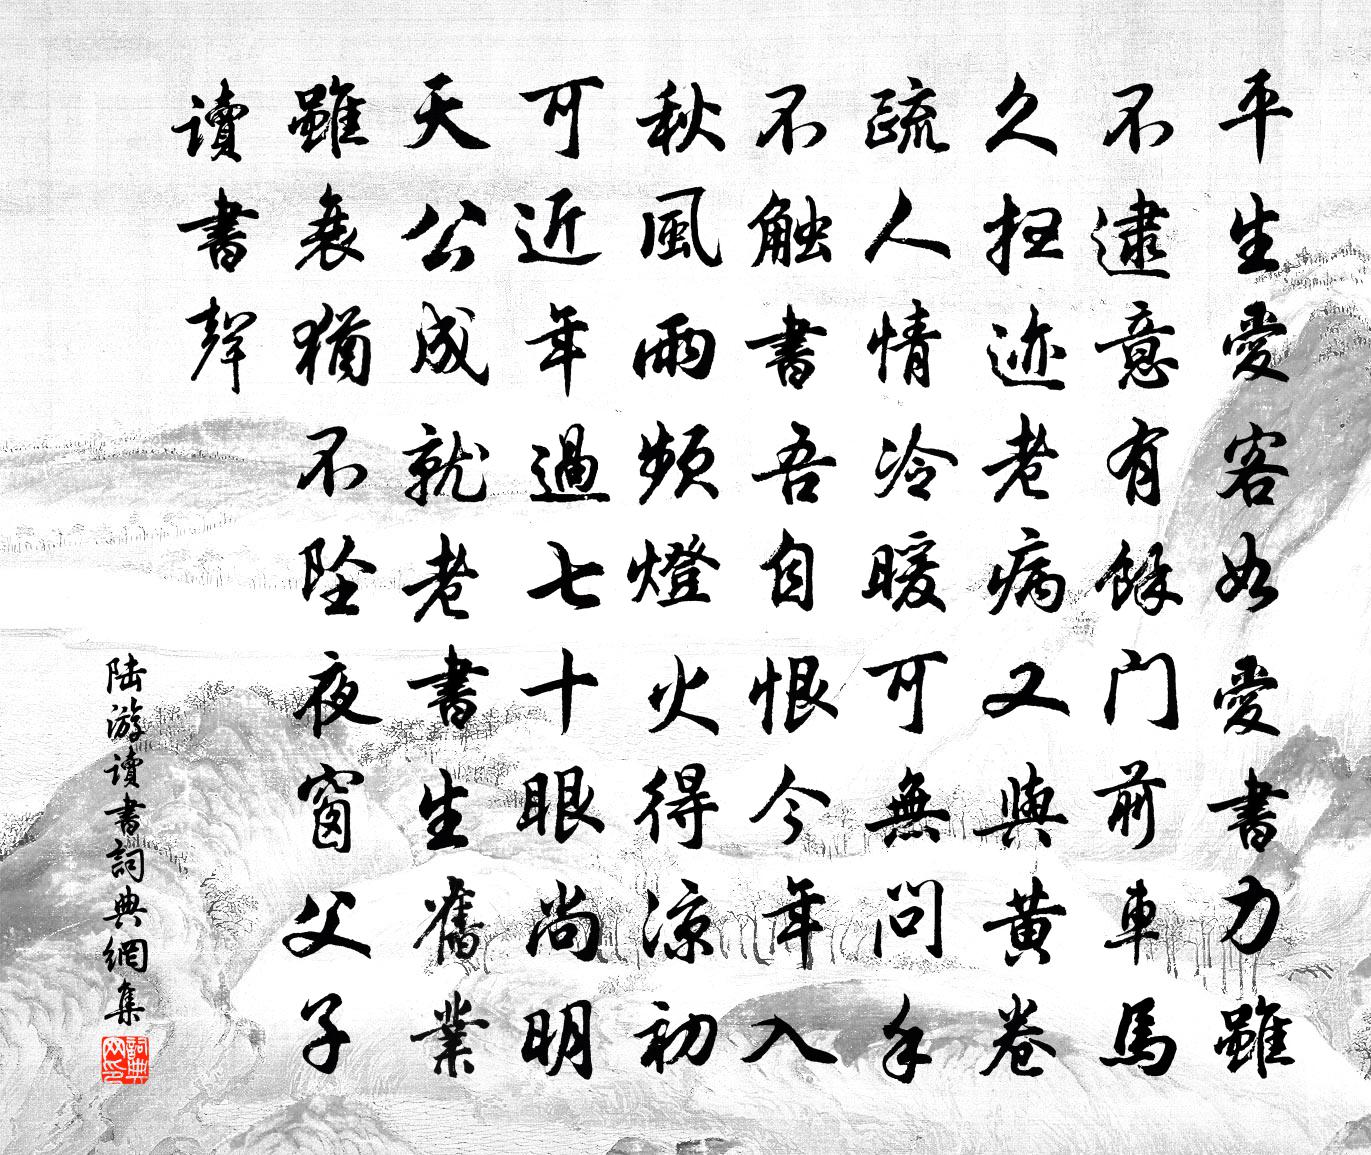 平生愛客如愛書力雖
不逮意有餘门前車馬
久扫迹老病又與黄卷
疏人情冷暖可無问手
不触書吾自恨今年入
秋風雨頻燈火得凉初
可近年過七十眼尚明
天公成就老書生舊業
雖衰猶不坠夜窗父子
讀書聲
陆游讀書詞典網集
詞典网印